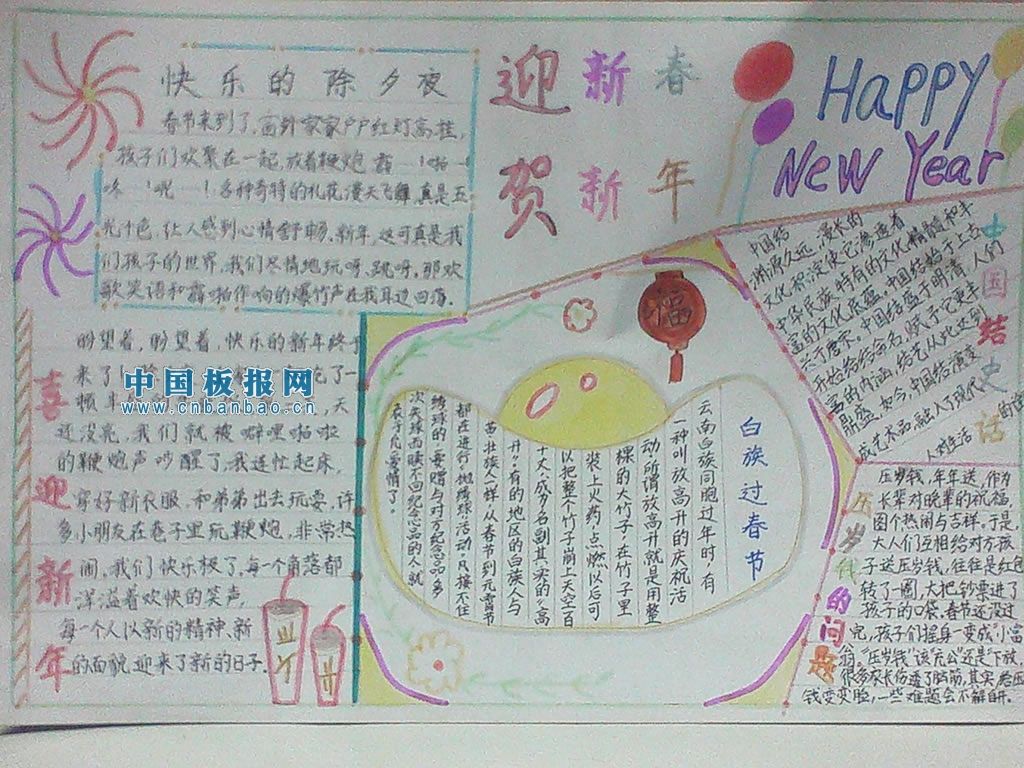 快乐的除夕夜
春节来到了,窗外家家户户红灯高挂,
孩子们欢聚在一起,放着鞭炮
各种奇特的礼花漫天飞舞,真是五
光十色,让人感到心情舒畅,新年,这可真是我
们孩子的世界,我们尽情地玩呀,跳呀,那欢
歌笑语和霹啪作响的爆竹声在我耳边回荡.
迎新春
贺新年
Happy
New Year
喜迎新年
盼望着,盼望着,快乐的新年终于
来了!
中国板报网
www.cnbanbao.cn
,天
还没亮,我们就被噼里啪啦
的鞭炮声吵醒了,我连忙起床,
穿好新衣服,和弟弟出去玩耍,许
多小朋友在巷子里玩鞭炮,非常热
闹,我们快乐极了,每一个角落都
洋溢着欢快的笑声,
每一个人以新的精神、新
的面貌迎来了新的日子.
福
白族过春节
云南白族同胞过年时,有
一种叫放高升的庆祝活
动,所谓放高升就是用整
棵的大竹子,在竹子里
装上火药,点燃以后可
以把整个竹子崩上天空百
十丈,成为名副其实的“高
升”。有的地区的白族人与
苗、壮族人一样,从春节到元宵节
都在进行“抛绣球”活动,凡接不住
绣球的,要赠与对方纪念品,多
次失球而赎不回纪念品的人就
表示凡爱情了。
中国结史话
中国结
渊源久远,漫长的
文化积淀使它渗透着
中华民族特有的文化精髓和丰
富的文化底蕴.中国结始于上古,
兴于唐宋.中国结盛于明清,人们
开始给结命名,赋予它更丰
富的内涵,结艺从此达到
鼎盛.如今,中国结演变
成艺术品,融入了现代
人对生活
压岁钱的问题
压岁钱,年年送,作为
长辈对晚辈的祝福,
图个热闹与吉祥。于是,
大人们互相给对方孩
子送压岁钱,往往是红包
转了一圈,大把钞票进了
孩子的口袋.春节还没过
完,孩子们摇身一变成“小富
翁。“压岁钱”该“充公”还是“下放,
很多家长伤透了脑筋,其实,给压
钱变变脸,一些难题会不解自开.